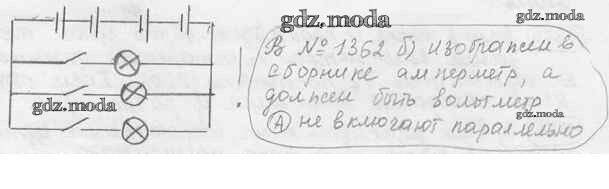 gdz.moda
В № 1362 б) изображен в
gdz.moda
сборнике амперметр, а
gdz.moda
должен быть вольтметр
gdz.moda
А не включают параллельно